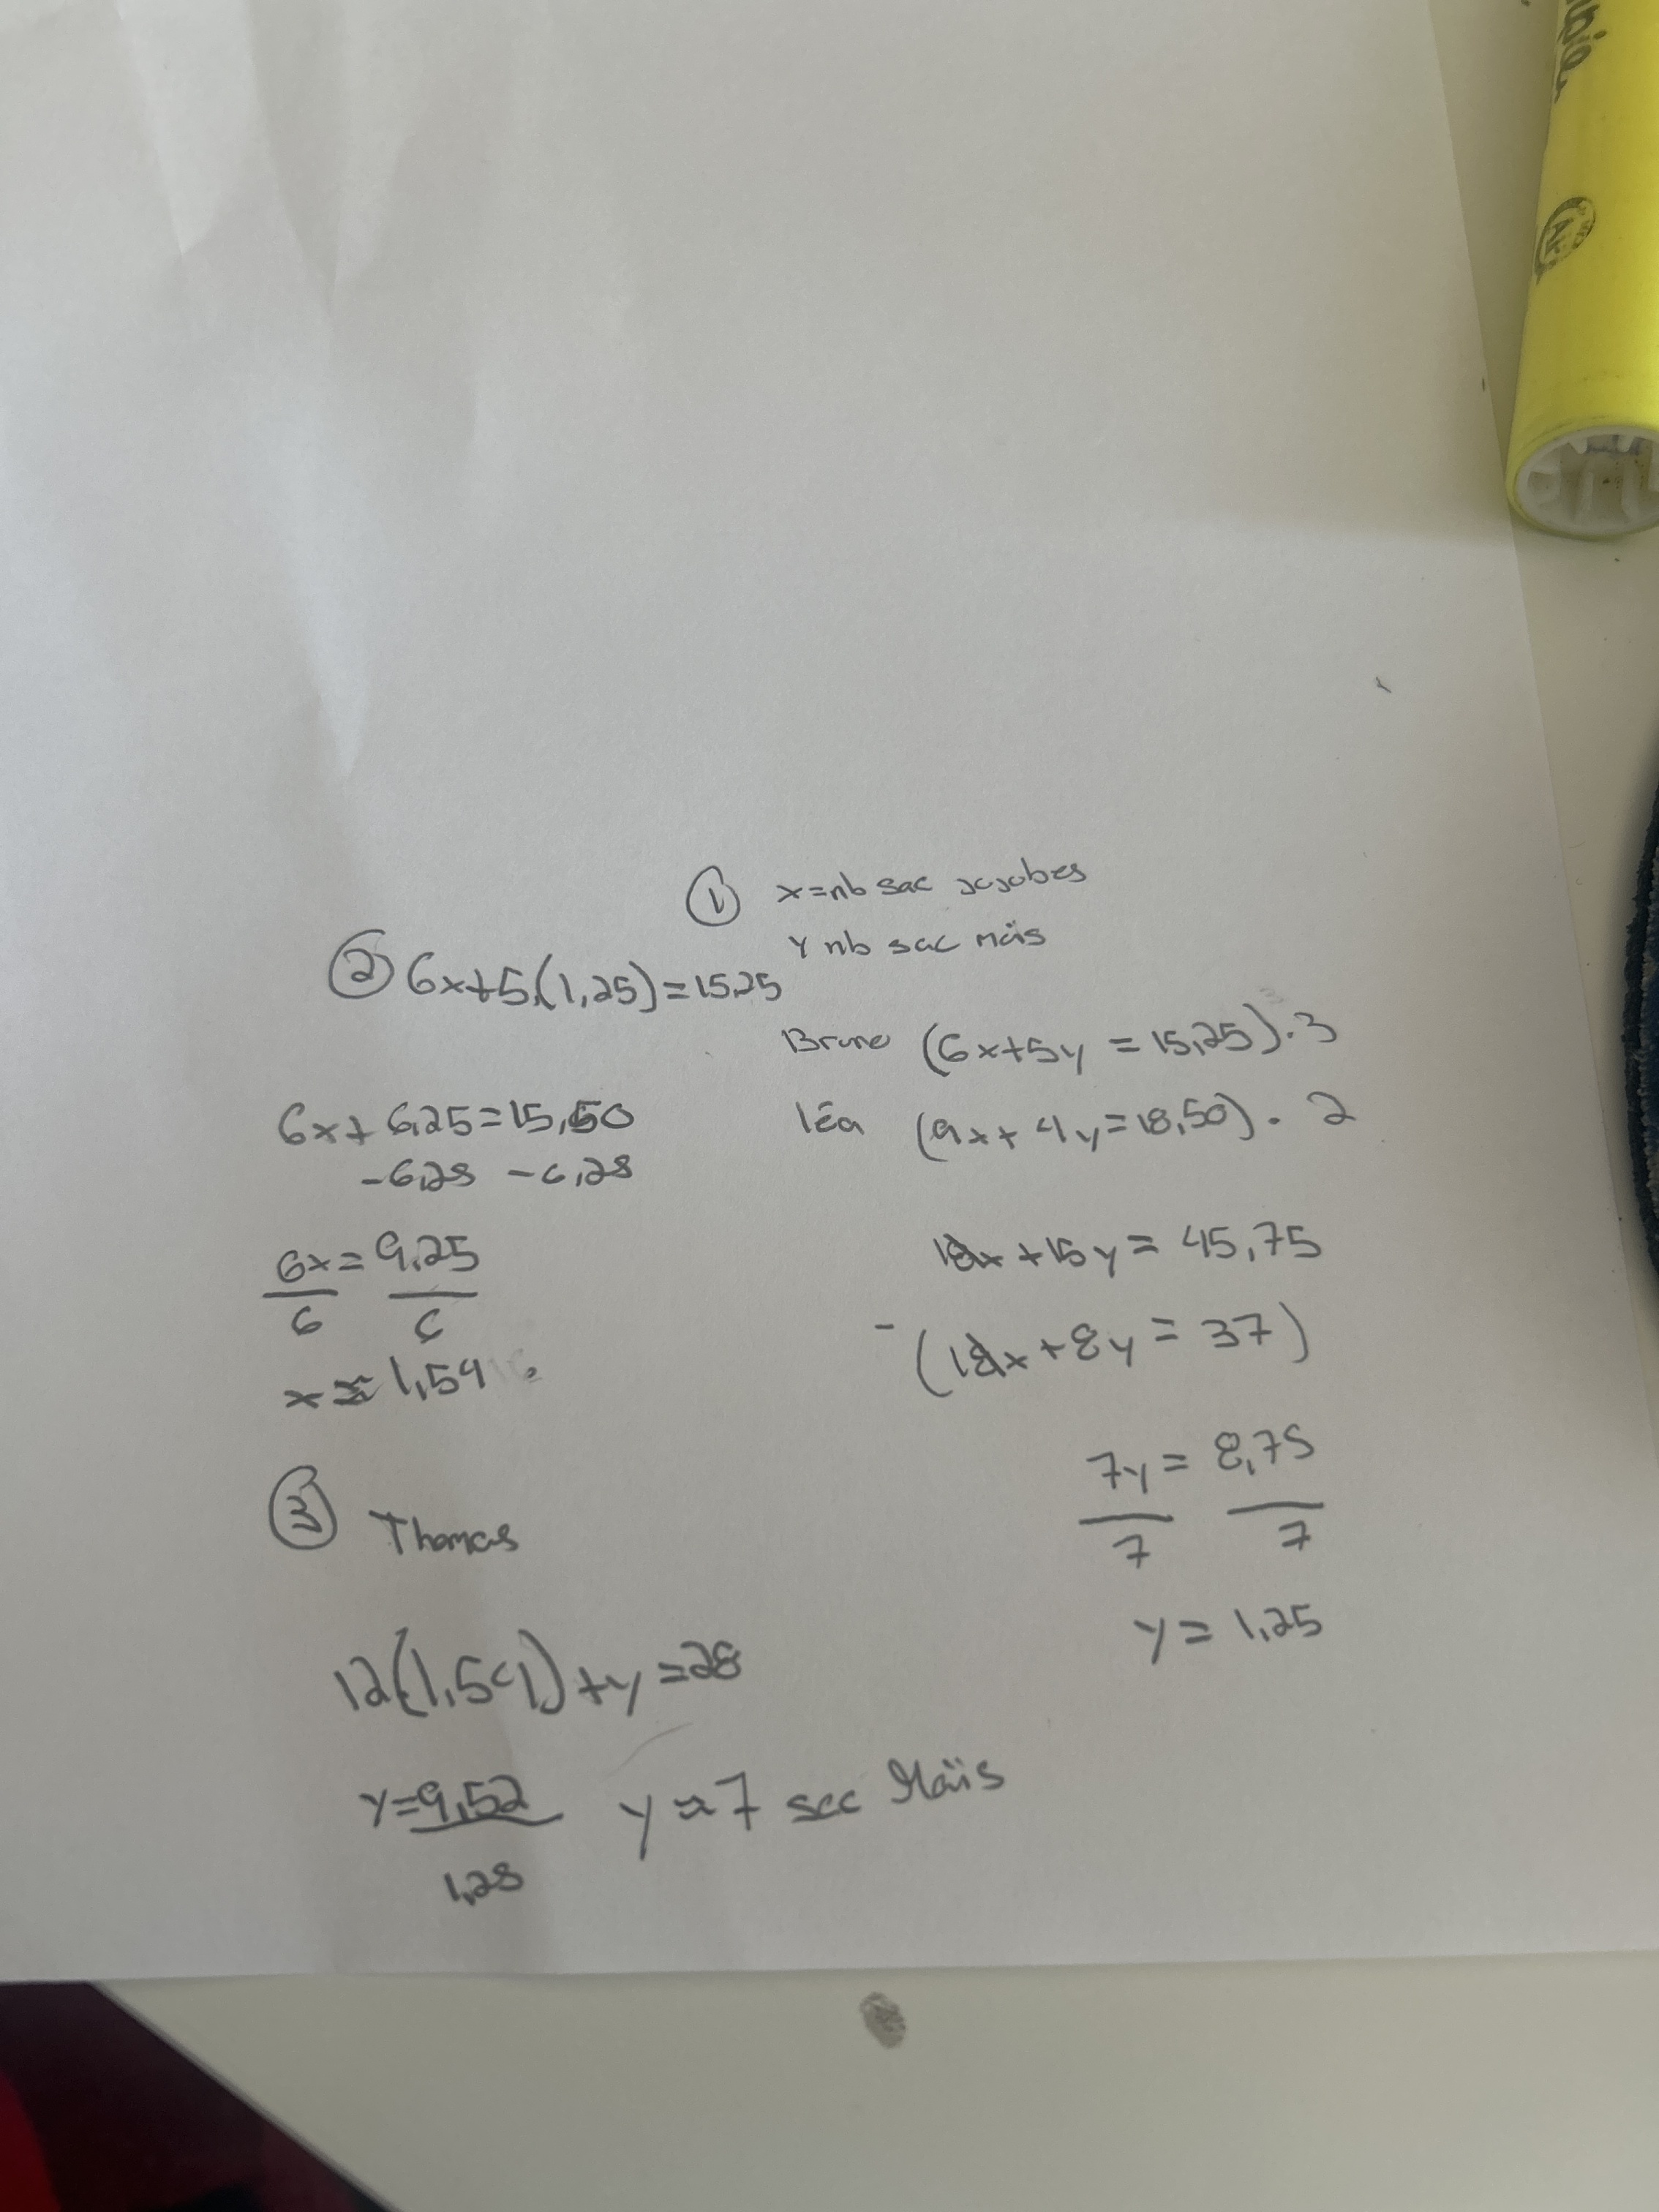 ① x=nb sac jujubes
y nb sac maïs
Bruno (6x+5y = 15,25).3
léa (9x+4y=18,50). 2
18x+15y= 45,75
- (18x+8y= 37)
7y= 8,75
7 7
y= 1,25
② 6x+5.(1,25)=15,25
6x+6,25=15,50
-6,25 -6,25
6x=9,25
6 6
x≈1,54
③ Thomas
12(1,54)+y=28
y=9,52 y≈7 sac Maïs
1,25